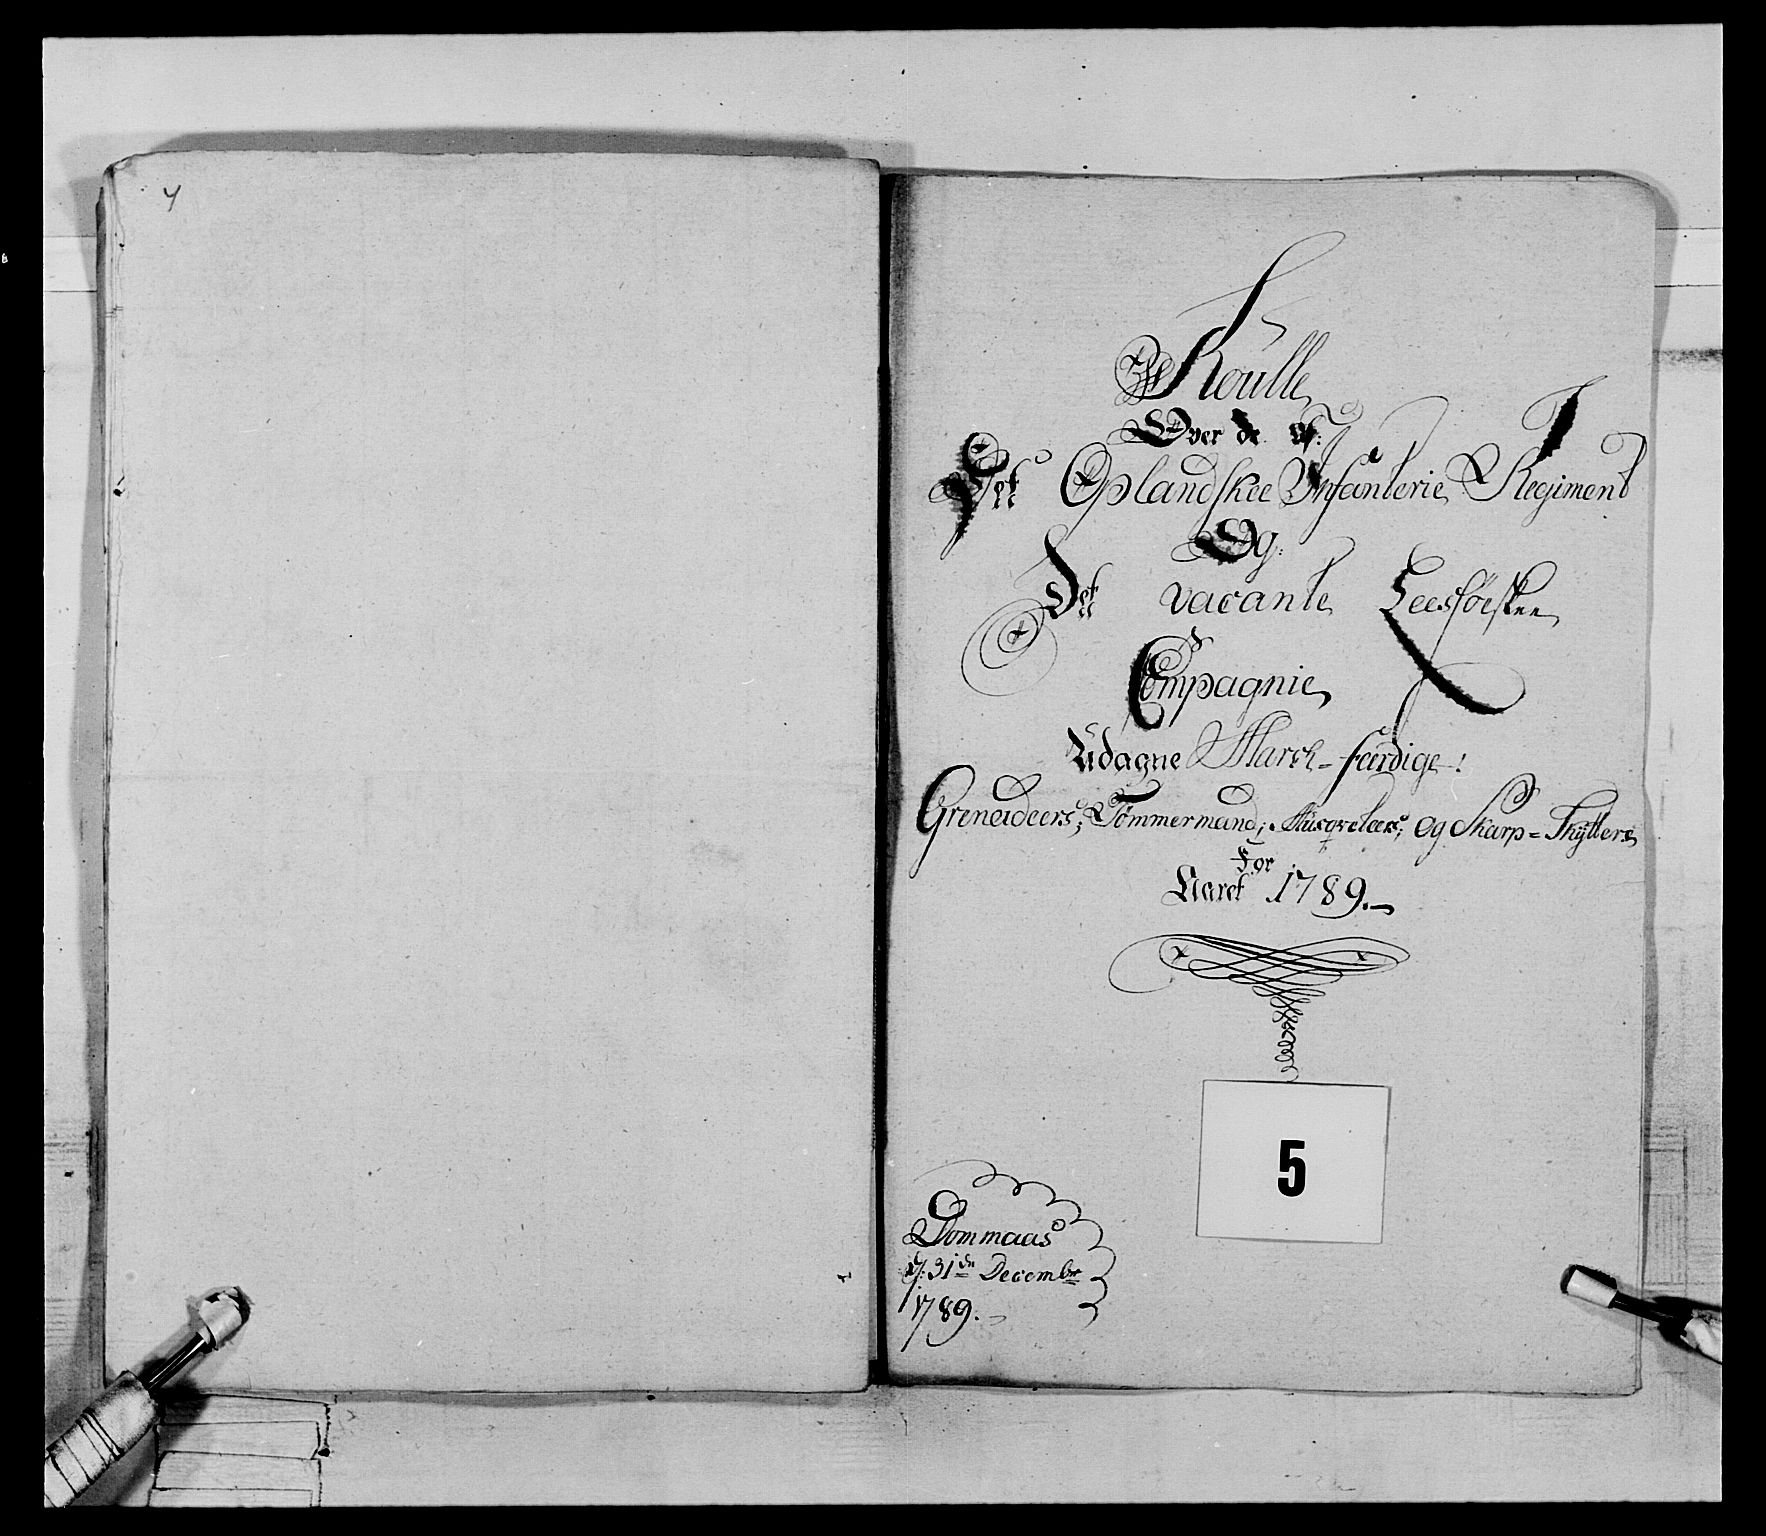 4
Roulle
Over de af:
Det Oplandskee Infanterie Regiment
Og
Det vacante Leessöeskee
Compagnie
Udagne March-feerdige:
Grenadeers; Tömmermænd; Musqveteers; og Skarp-Skÿtters
For
Aaret 1789.
5
Dommaas
d: 31de Decembr
1789.